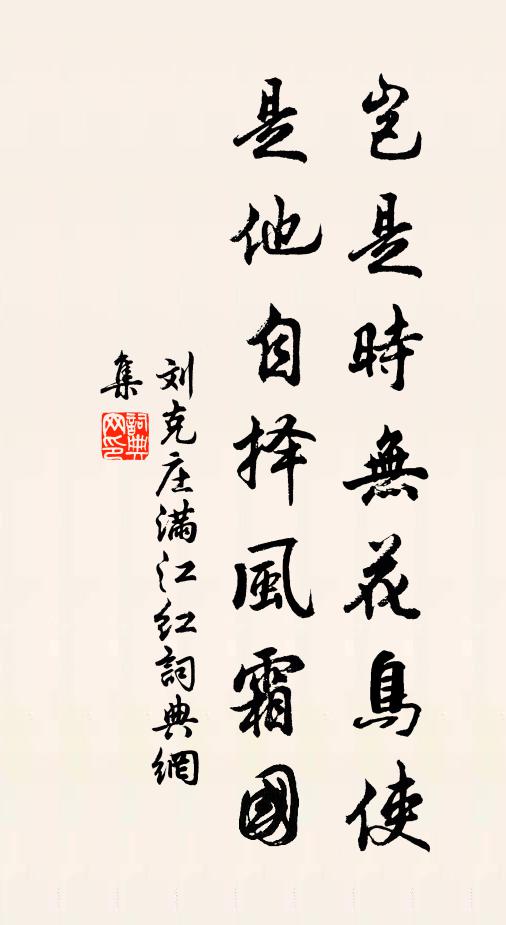 岂是時無花鳥使
是他自择風霜國
刘克庄满江红詞典網
集
詞典網印